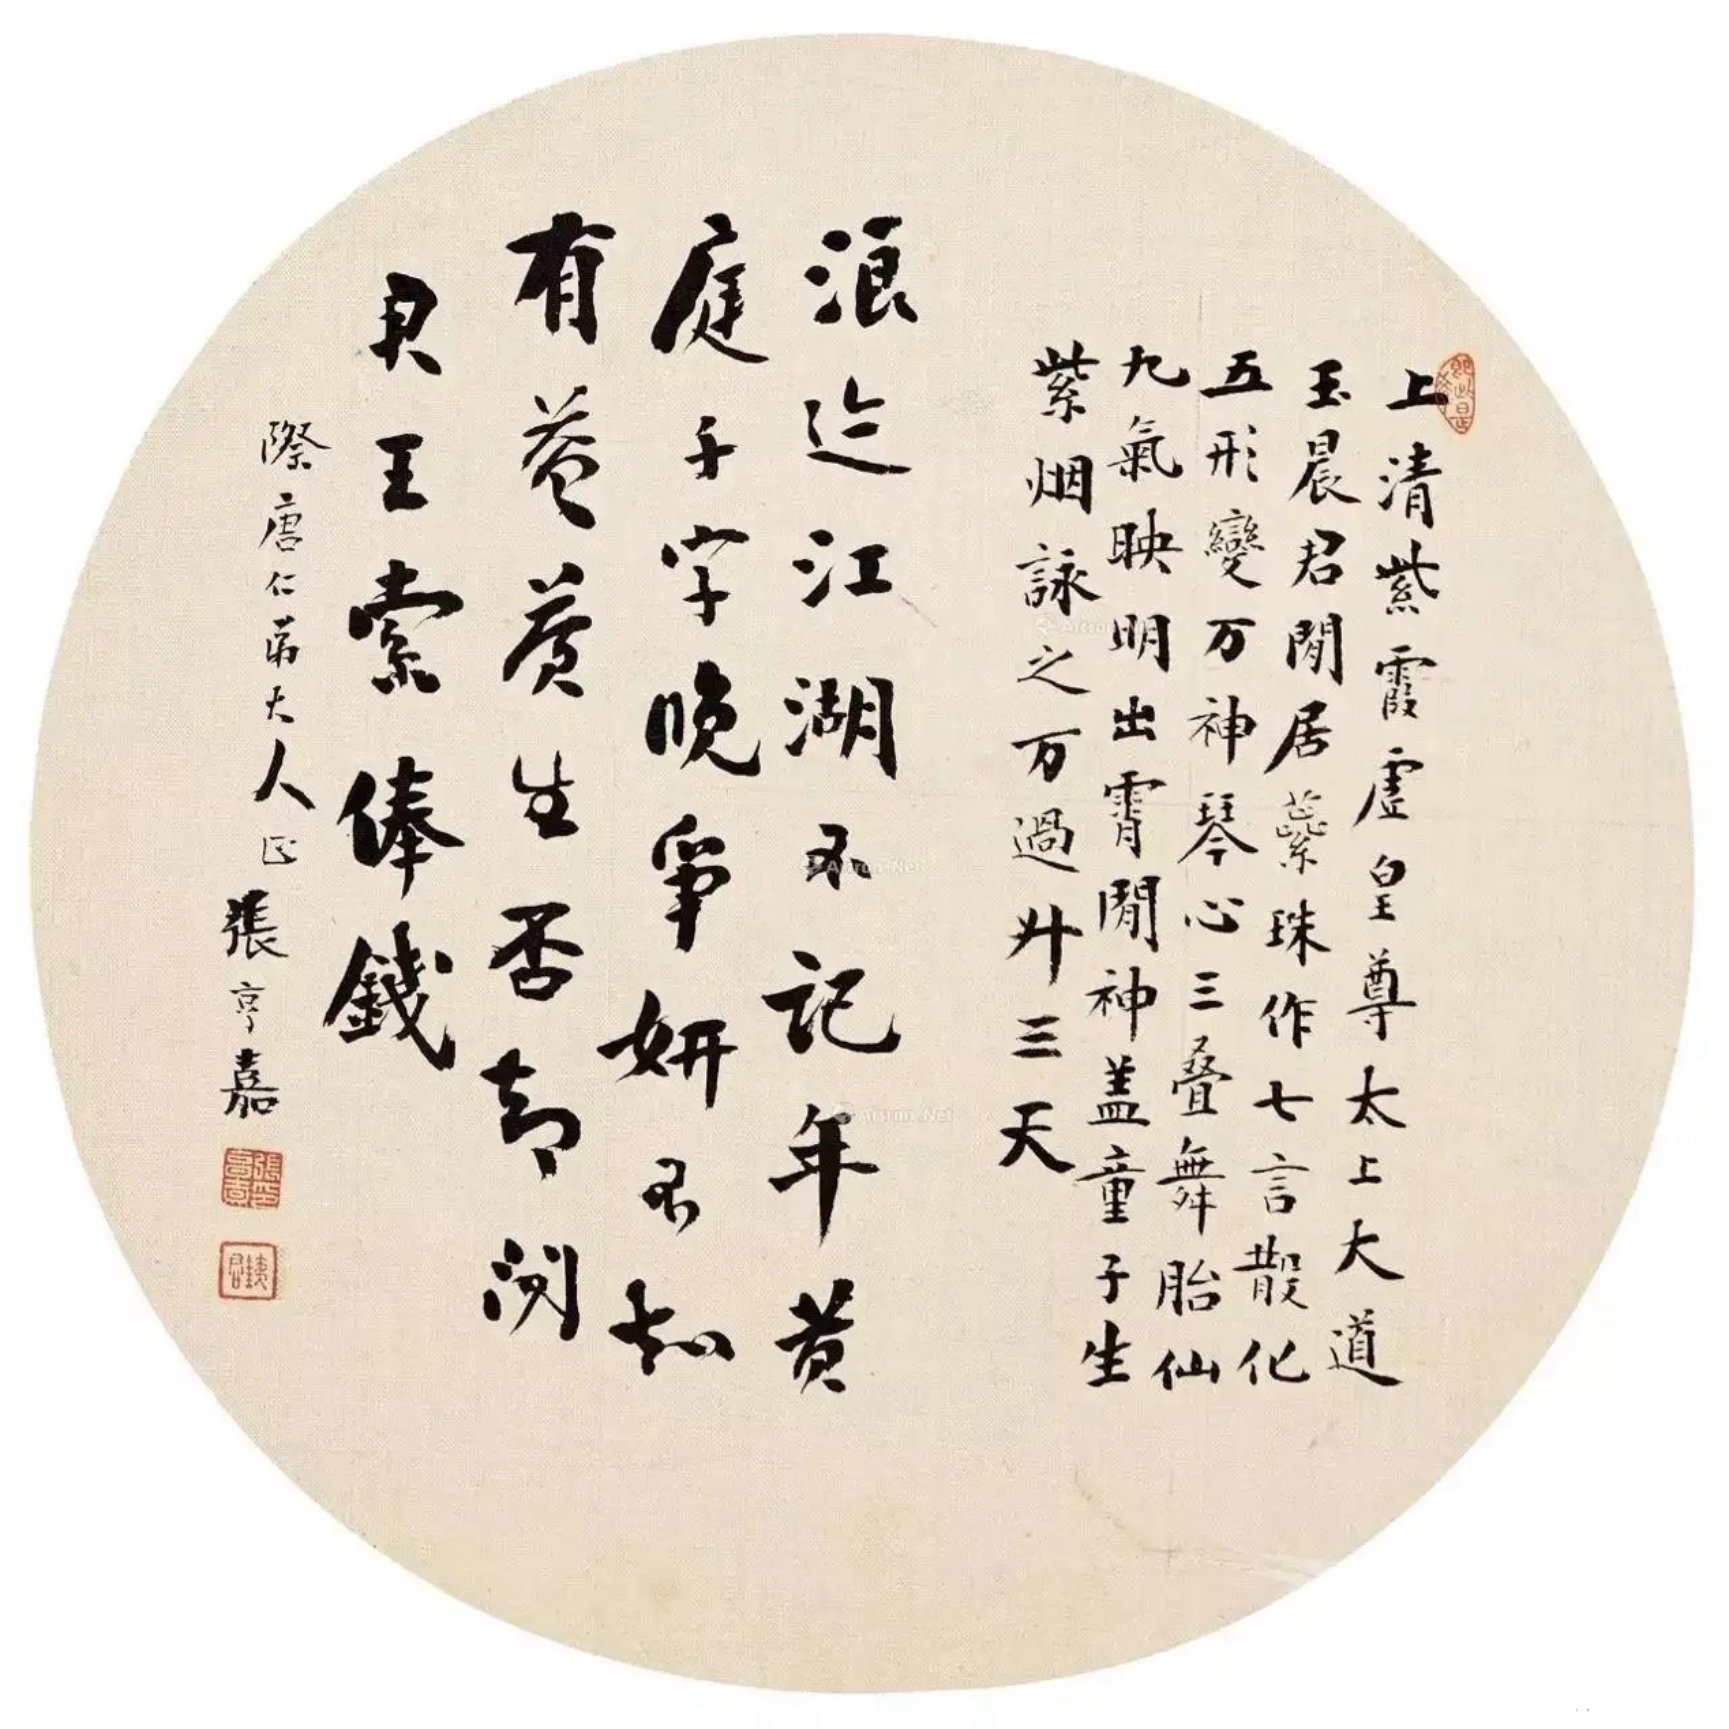 上清紫霞虛皇尊太上大道
玉晨君閒居蘂珠作七言散化
五形變万神琴心三叠舞胎仙
九氣映明出霄閒神盖童子生
紫烟詠之万過升三天
浪迹江湖不記年黄
庭千字晚爭妍不知
有益養生否却問
君王索俸錢
際唐仁弟大人正 張亨嘉
Artron.Net